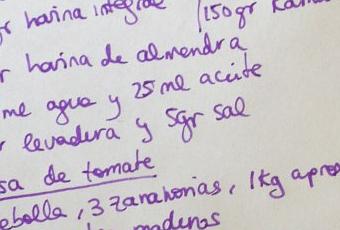 gr harina integral /150gr
r harina de almendra
me agua y 25 ml aceite
r levadura y 5gr sal
sa de tomate
ebolla, 3 zanahorias, 1kg
maduros